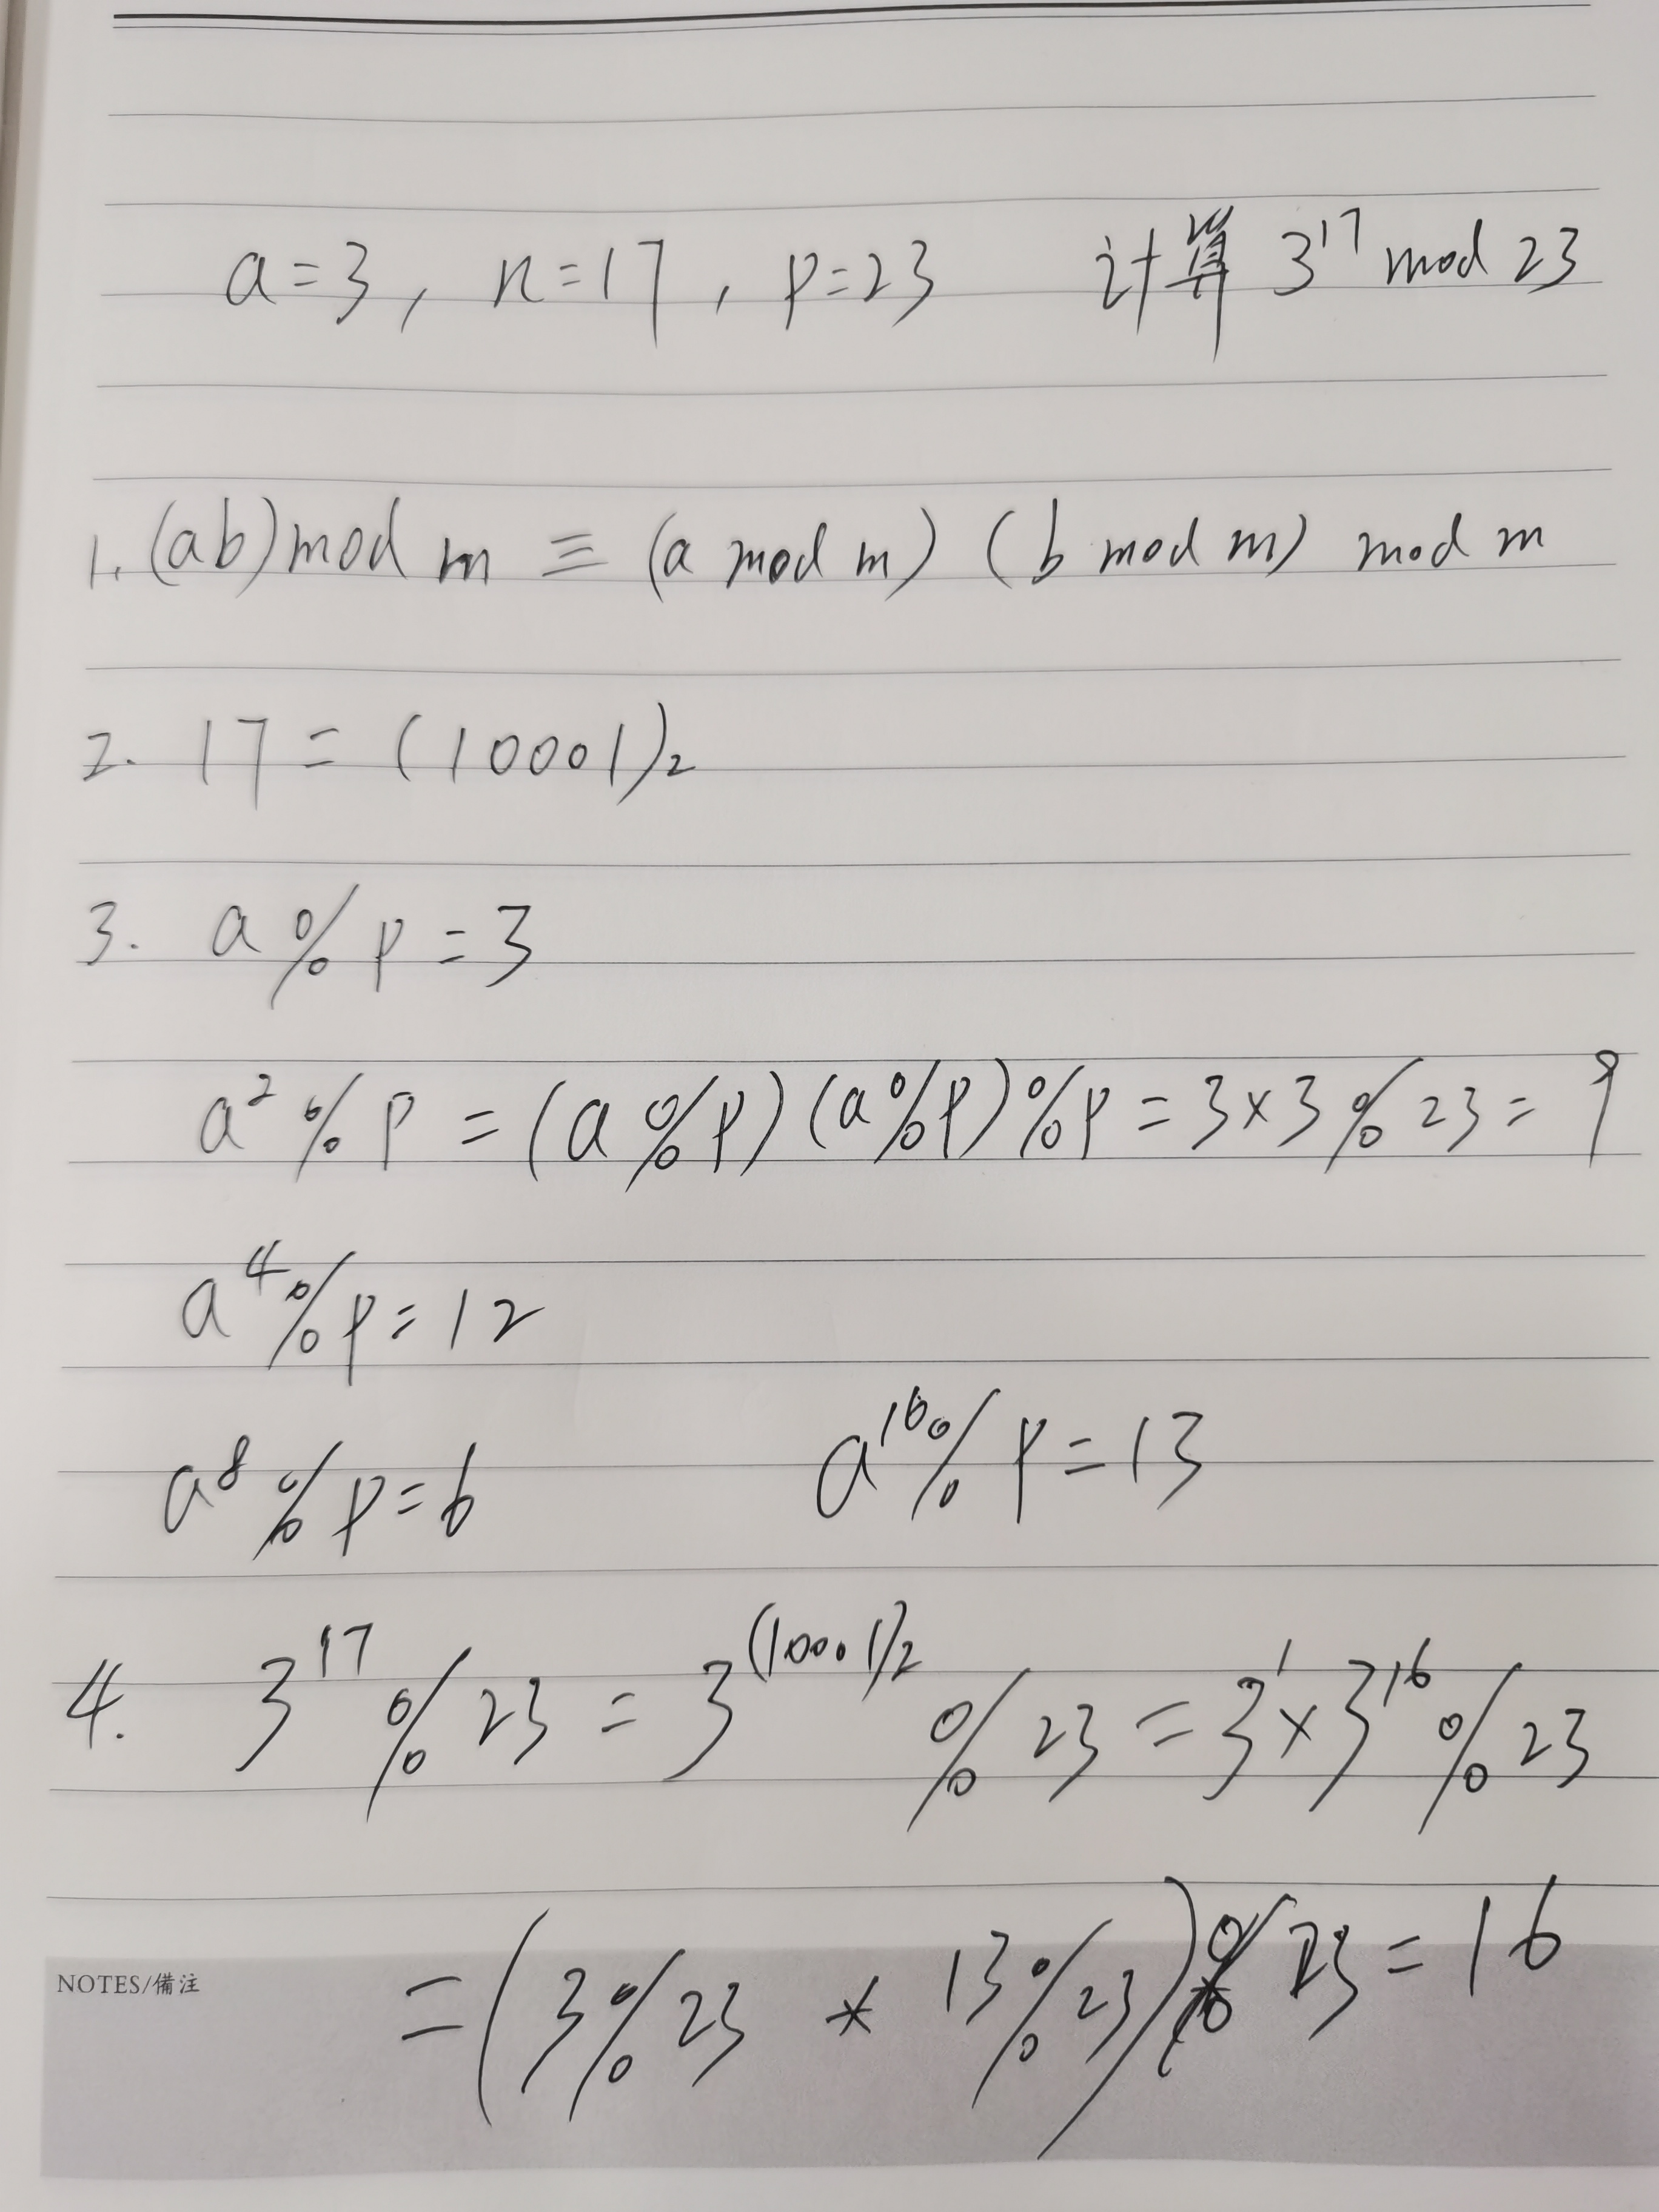 a=3, n=17, p=23 计算 3^17 mod 23
1. (ab) mod m ≡ (a mod m) (b mod m) mod m
2. 17 = (10001)₂
3. a % p = 3
a² % p = (a % p) (a % p) % p = 3×3 % 23 = 9
a⁴ % p = 12
a⁸ % p = 6 a^16 % p = 13
4. 3^17 % 23 = 3^(10001)₂ % 23 = 3^1 × 3^16 % 23
= (3 % 23 * 13 % 23) % 23 = 16
NOTES/備注